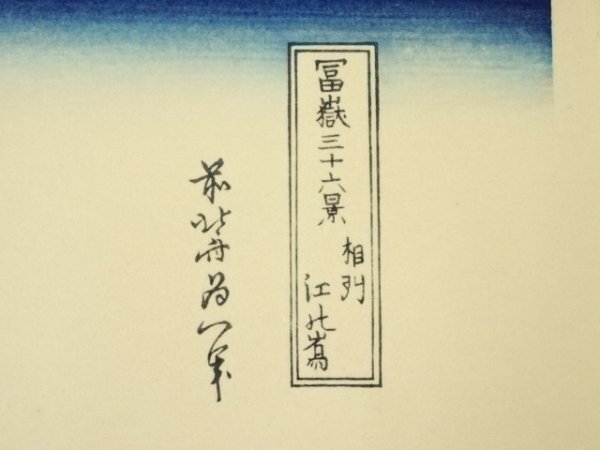 冨嶽三十六景
相州
江の嶌
前北斎為一筆